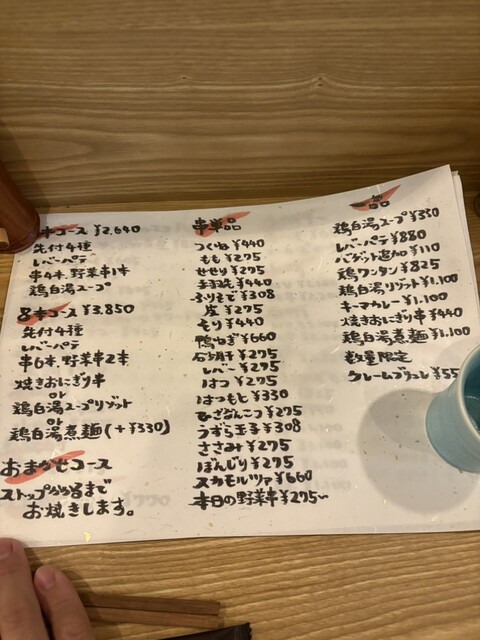 本コース ¥2,640
先付4種
レバーパテ
串4本、野菜串1本
鶏白湯スープ
8本コース ¥3,850
先付4種
レバーパテ
串6本、野菜串2本
焼きおにぎり串
or
鶏白湯スープリゾット
or
鶏白湯煮麺(+¥330)
おまかせコース
ストップかかるまで
お焼きします。
串単品
つくね ¥440
もも ¥275
せせり ¥275
手羽先 ¥440
ふりそで ¥308
皮 ¥275
もり ¥440
鴨ねぎ ¥660
砂肝 ¥275
レバー ¥275
はつ ¥275
はつもと ¥330
ひざなんこつ ¥275
うずら玉子 ¥308
ささみ ¥275
ぼんじり ¥275
スカモルツァ ¥660
本日の野菜串 ¥275〜
一品
鶏白湯スープ ¥330
レバーパテ ¥880
バゲット追加 ¥110
鶏ワンタン ¥825
鶏白湯リゾット ¥1,100
キーマカレー ¥1,100
焼きおにぎり串 ¥440
鶏白湯煮麺 ¥1,100
数量限定
クレームブリュレ ¥55